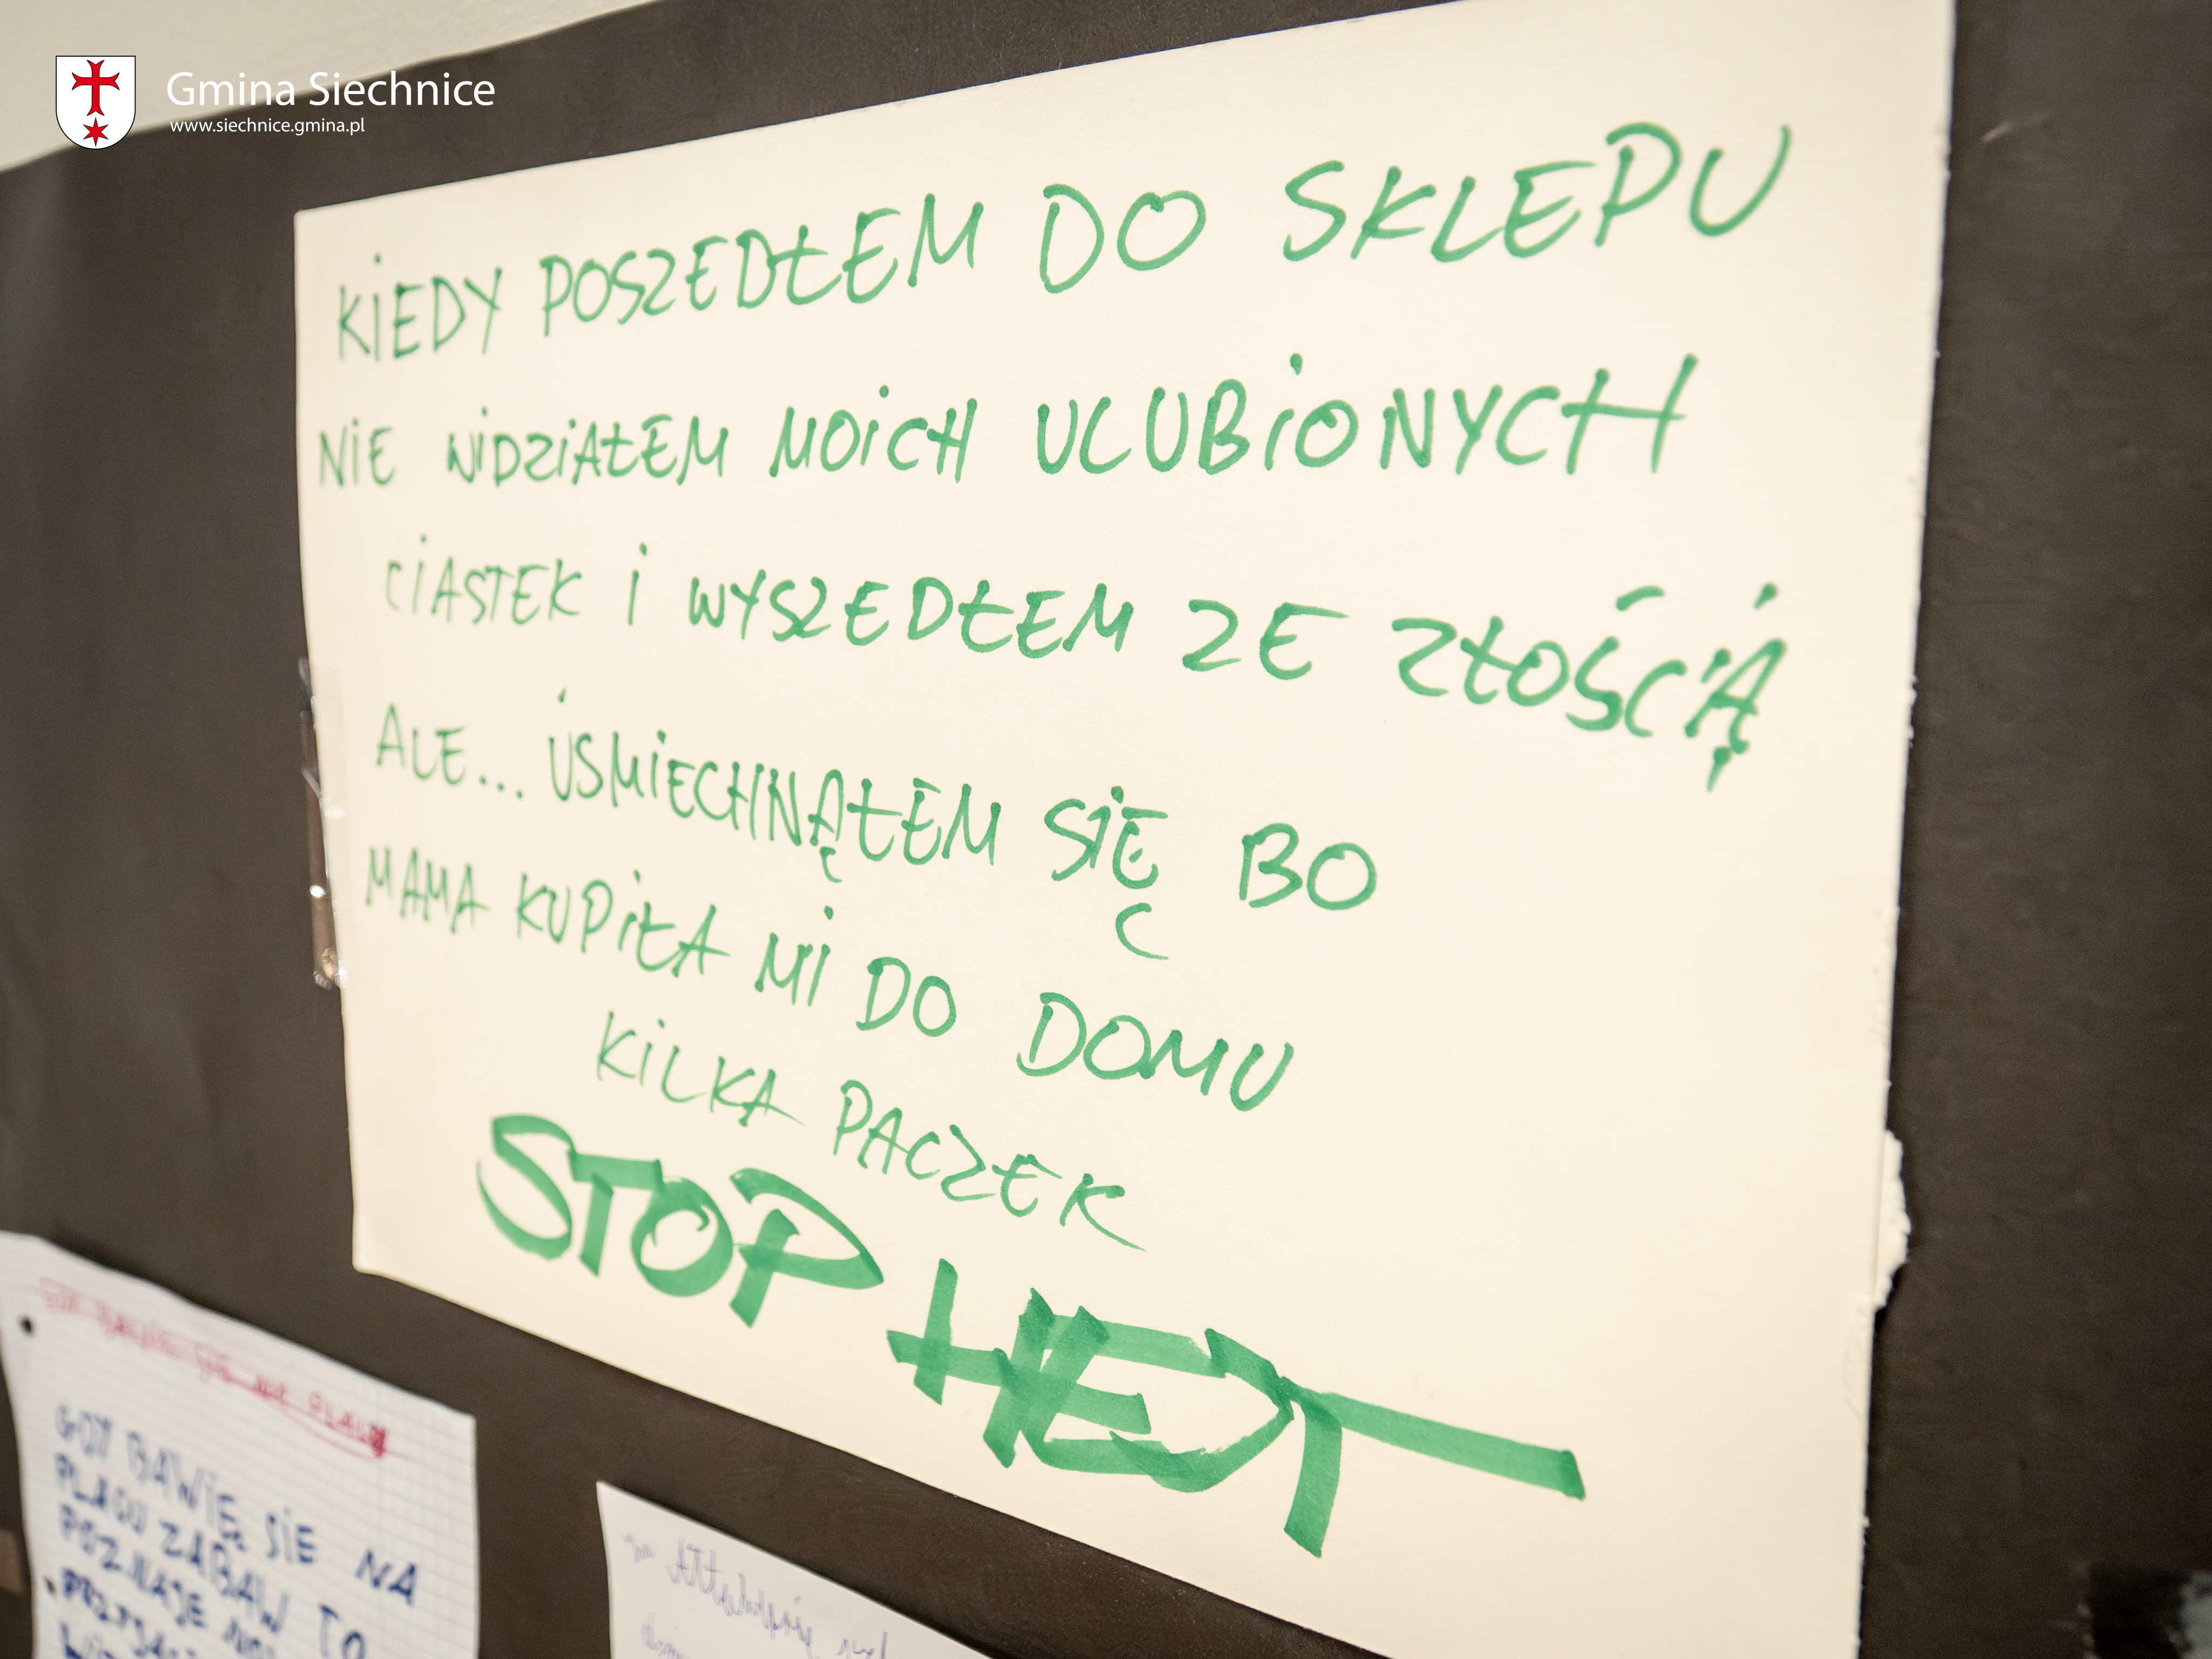 Gmina Siechnice
www.siechnice.gmina.pl
KIEDY POSZEDŁEM DO SKLEPU
NIE WIDZIAŁEM MOICH ULUBIONYCH
CIASTEK I WYSZEDŁEM ZE ZŁOŚCIĄ
ALE... UŚMIECHNĄŁEM SIĘ BO
MAMA KUPIŁA MI DO DOMU
KILKA PACZEK
STOP HEJT
GDY BAWIĘ SIE NA
PLACU ZABAW TO
POZNAJE